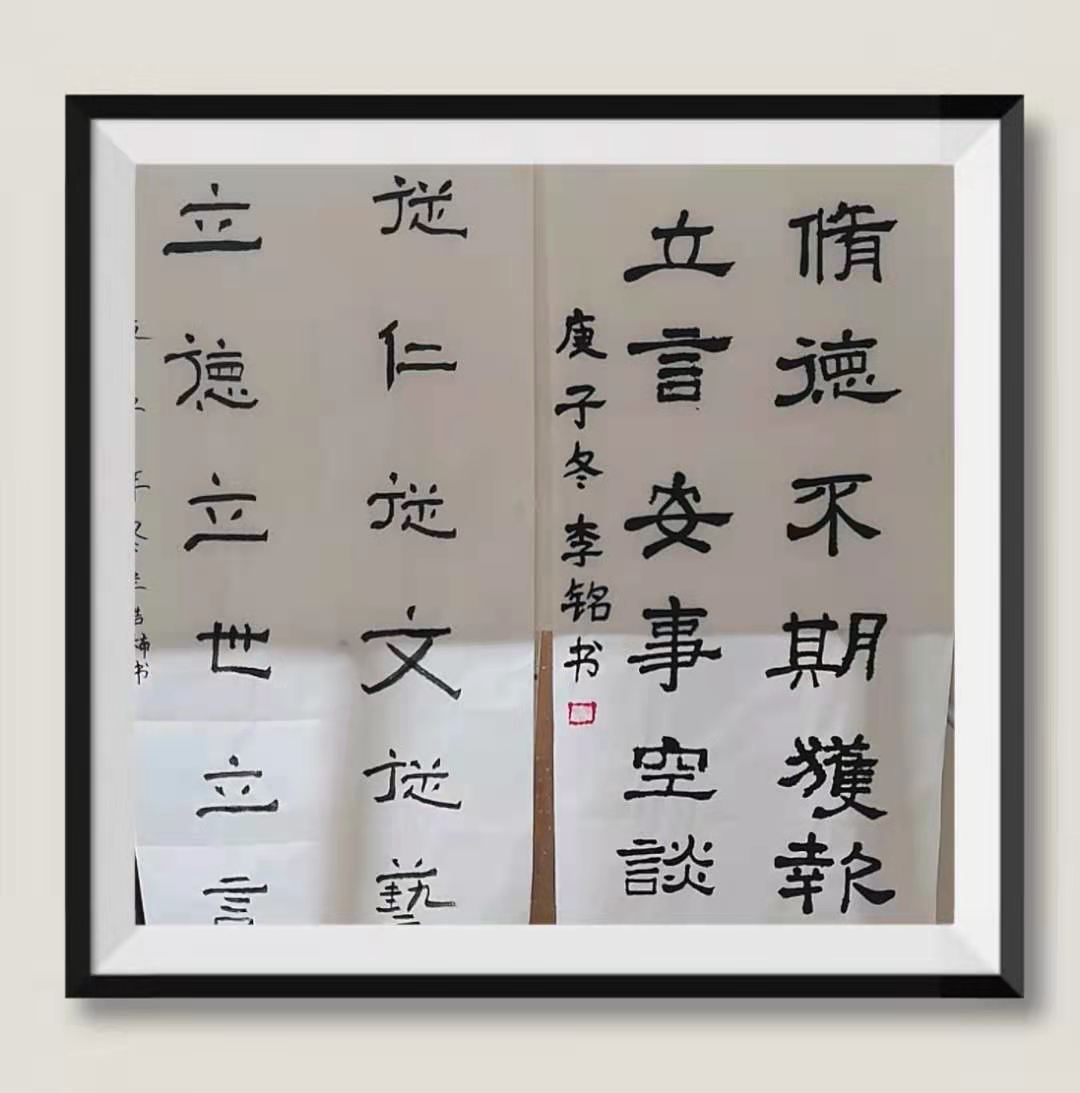 脩德不期獲報
立言安事空談
庚子冬李铭书
從仁從文從藝
立德立世立言